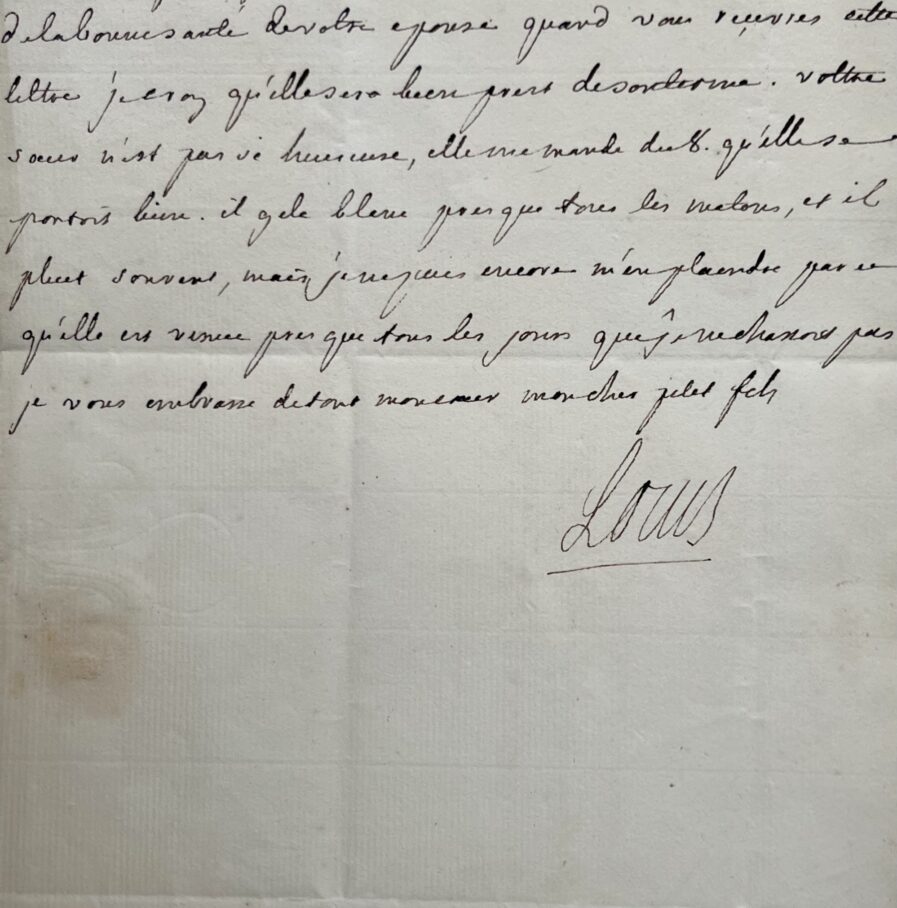 de la bonne santé de votre epouse quand vous reçevres cette
lettre je croy qu'elle sera bien prest de son terme. vottre
sœur n'est pas si heureuse, elle me mande du 8. qu'elle se
portoit bien. il gele blanc presque tous les matins, et il
pleut souvent, mais je ne puis encore m'en plaindre par ce
qu'elle est venue presque tous les jours que je ne chassois pas
je vous embrasse de tout mon cœur mon cher petit fils
Louis